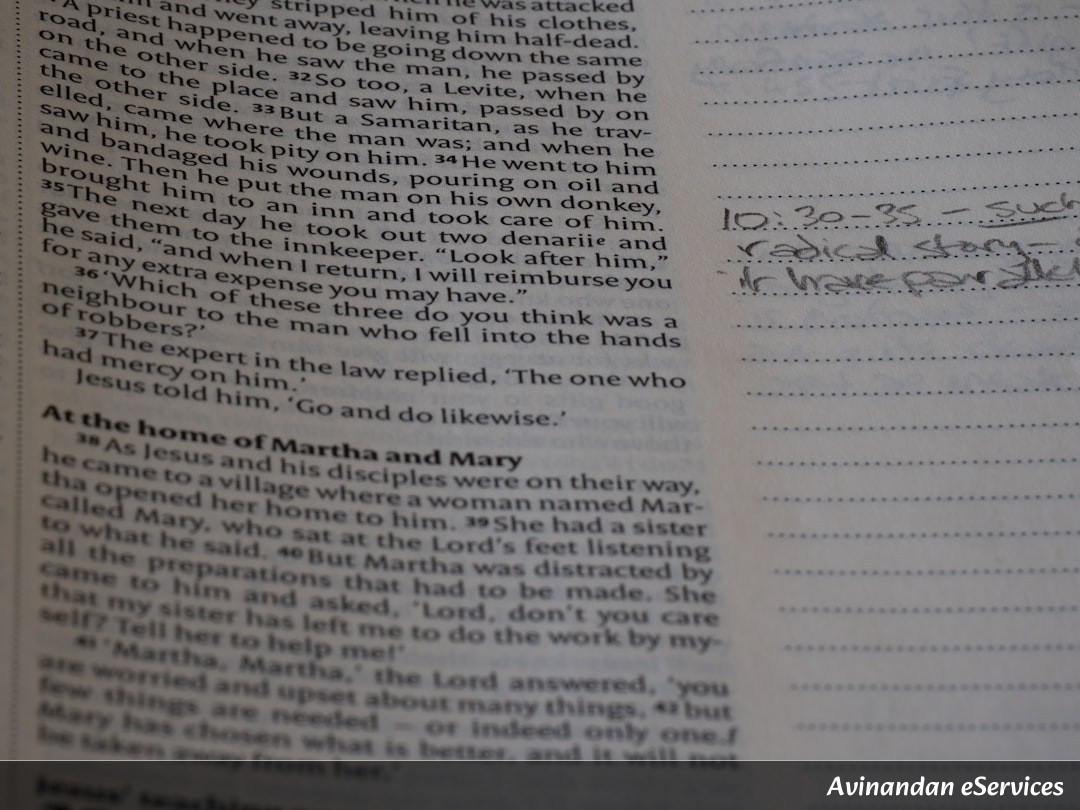 he was attacked
they stripped him of his clothes,
and went away, leaving him half-dead.
A priest happened to be going down the same
road, and when he saw the man, he passed by
on the other side. 32 So too, a Levite, when he
came to the place and saw him, passed by on
the other side. 33 But a Samaritan, as he trav-
elled, came where the man was; and when he
saw him, he took pity on him. 34 He went to him
and bandaged his wounds, pouring on oil and
wine. Then he put the man on his own donkey,
brought him to an inn and took care of him.
35 The next day he took out two denarii e and
gave them to the innkeeper. “Look after him,”
he said, “and when I return, I will reimburse you
for any extra expense you may have.”
36 ‘Which of these three do you think was a
neighbour to the man who fell into the hands
of robbers?’
37 The expert in the law replied, ‘The one who
had mercy on him.’
Jesus told him, ‘Go and do likewise.’
At the home of Martha and Mary
38 As Jesus and his disciples were on their way,
he came to a village where a woman named Mar-
tha opened her home to him. 39 She had a sister
called Mary, who sat at the Lord’s feet listening
to what he said. 40 But Martha was distracted by
all the preparations that had to be made. She
came to him and asked, ‘Lord, don’t you care
that my sister has left me to do the work by my-
self? Tell her to help me!’
41 ‘Martha, Martha,’ the Lord answered, ‘you
are worried and upset about many things, 42 but
few things are needed – or indeed only one. f
Mary has chosen what is better, and it will not
be taken away from her.’
Jesus’ teaching
10:30-35 - such
radical story -
Avinandan eServices